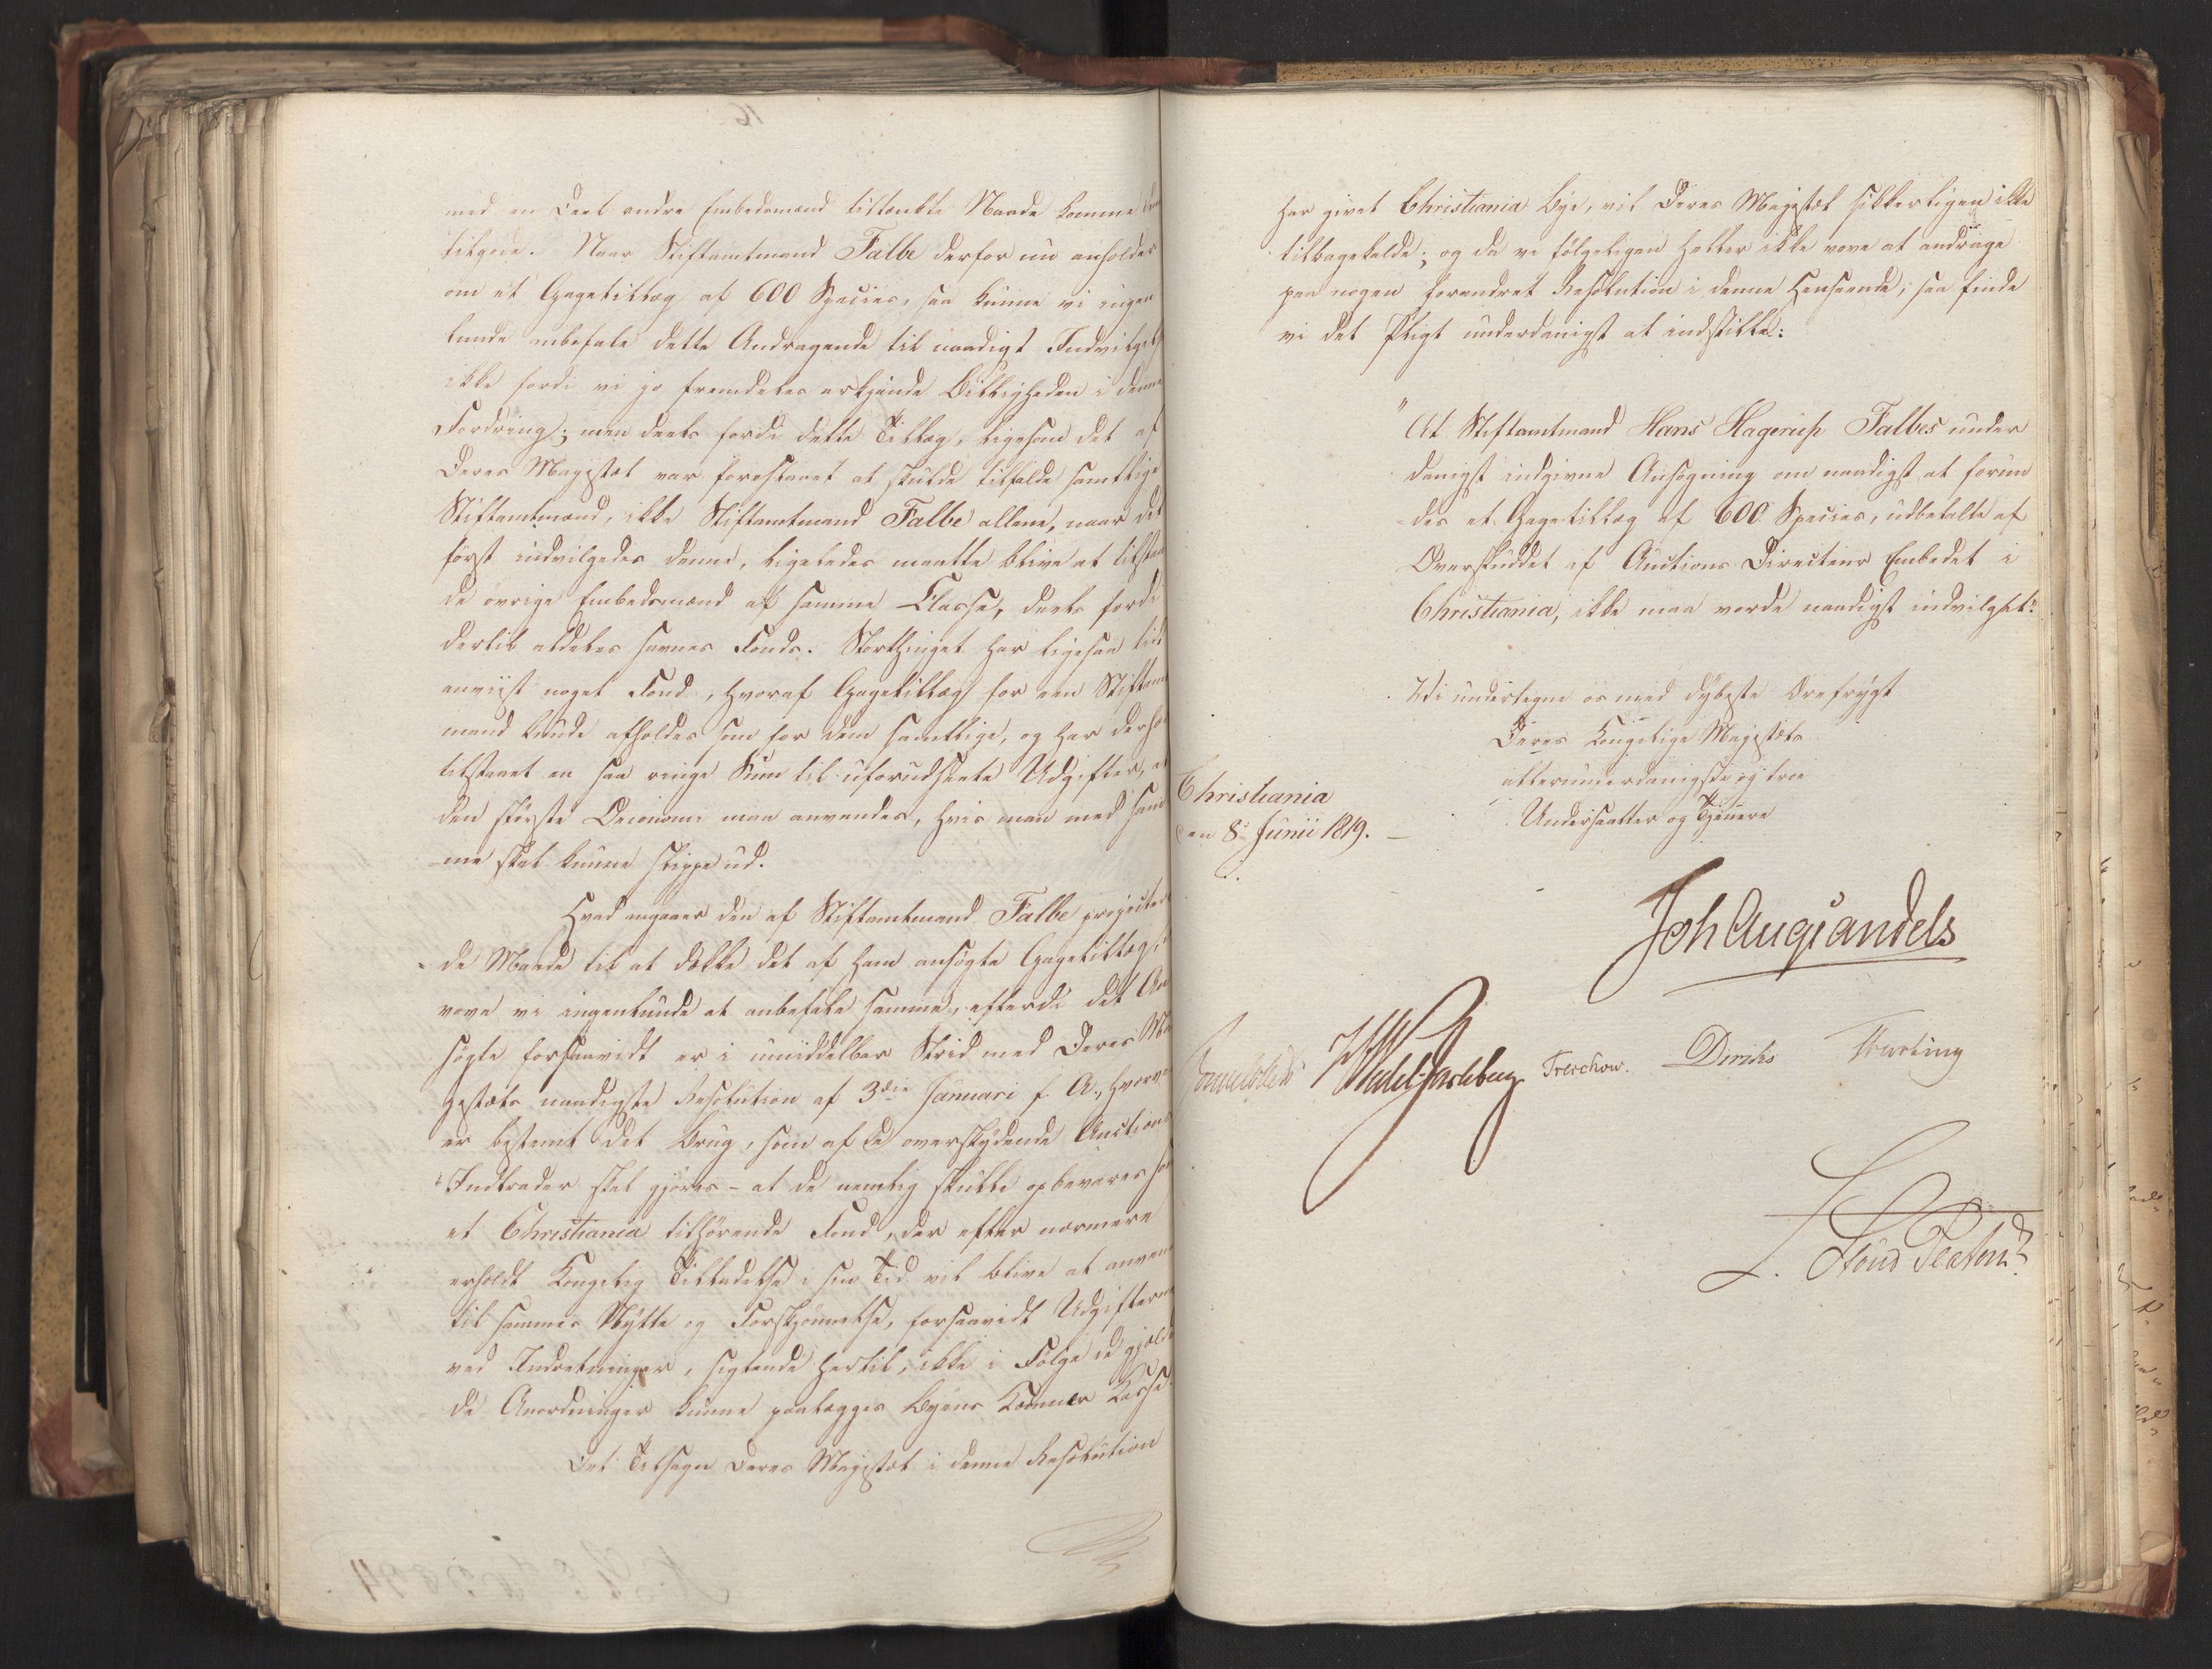 med en Deel andre Embedsmænd tiltænkte Naade komme
tilgode. Naar Stiftamtmand Falbe derfor nu anholder
om et Gagetillæg af 600 Species, saa kunne vi ingen
lunde anbefale dette Andragende til naadigst Indvilgelse
ikke fordi vi jo fremdeles erkjende Billigheden i denne
Fordring; men deels fordi dette Tillæg, ligesom det af
Deres Majestæt var foreslaaet at skulde tilfalde samtlige
Stiftamtmænd, ikke Stiftamtmand Falbe allene, naar det
først indvilgedes denne, ligeledes maatte blive at tilstaae
de øvrige Embedsmænd af samme Classe, deels fordi
dertil aldeles savnes Fonds. Storthinget har ligesaa lidt
anviist noget Fond, hvoraf Gagetillæg for een Stiftamt
mand kunde afholdes som for dem samtlige, og har derhos
tilstaaet en saa ringe Sum til uforudseete Udgifter, at
den største Oeconomie maa anvendes, hvis man med sam
-me skal kunne slippe ud.
Hvad angaaer den af Stiftamtmand Falbe projecter
-de Maade til at dække det af ham ansøgte Gagetillæg,
vove vi ingenlunde at anbefale samme, efterdi det An
søgte forsaavidt er i umiddelbar Strid med Deres Ma
jestæts naadigste Resolution af 3die Januari f. A., hvorved
er bestemt det Brug, som af de overskydende Auctions
Indtrader skal gjøres - at de nemlig skulle opbevares som
et Christiania tilhørende Fond, der efter nærmere
erholdt Kongelig Tilladelse i sin Tid vil blive at anvende
til sammes Nytte og Forskjønnelse, forsaavidt Udgifterne
ved Indretninger, sigtende hertil, ikke i Følge de gjælden
de Anordninger kunne paalægges Byens Kæmner Kasse.
Det Tilsagn Deres Majestæt i denne Resolution
har givet Christiania Bye, vil Deres Majestæt sikkerligen ikke
tilbagekalde; og da vi følgeligen heller ikke vove at andrage
paa nogen forandret Resolution i denne Henseende, saa finde
vi det Pligt underdanigst at indstille:
"At Stiftamtmand Hans Hagerup Falbes under
danigst indgivne Ansøgning om naadigst at forun
-des et Gagetillæg af 600 Species, udbetalte af
Overskuddet af Auctions Directeur Embedet i
Christiania, ikke maa vorde naadigst indvilget."
Vi undertegne os med dybeste Ærefrygt
Deres Kongelige Majestæts
allerunderdanigste og troe
Undersaatter og Tjenere
Christiania
den 8de Junii 1819.
Joh Aug Sandels
Sommerhielm Wedel Jarlsberg Treschow. Diriks Fasting
L. Stoud Platou